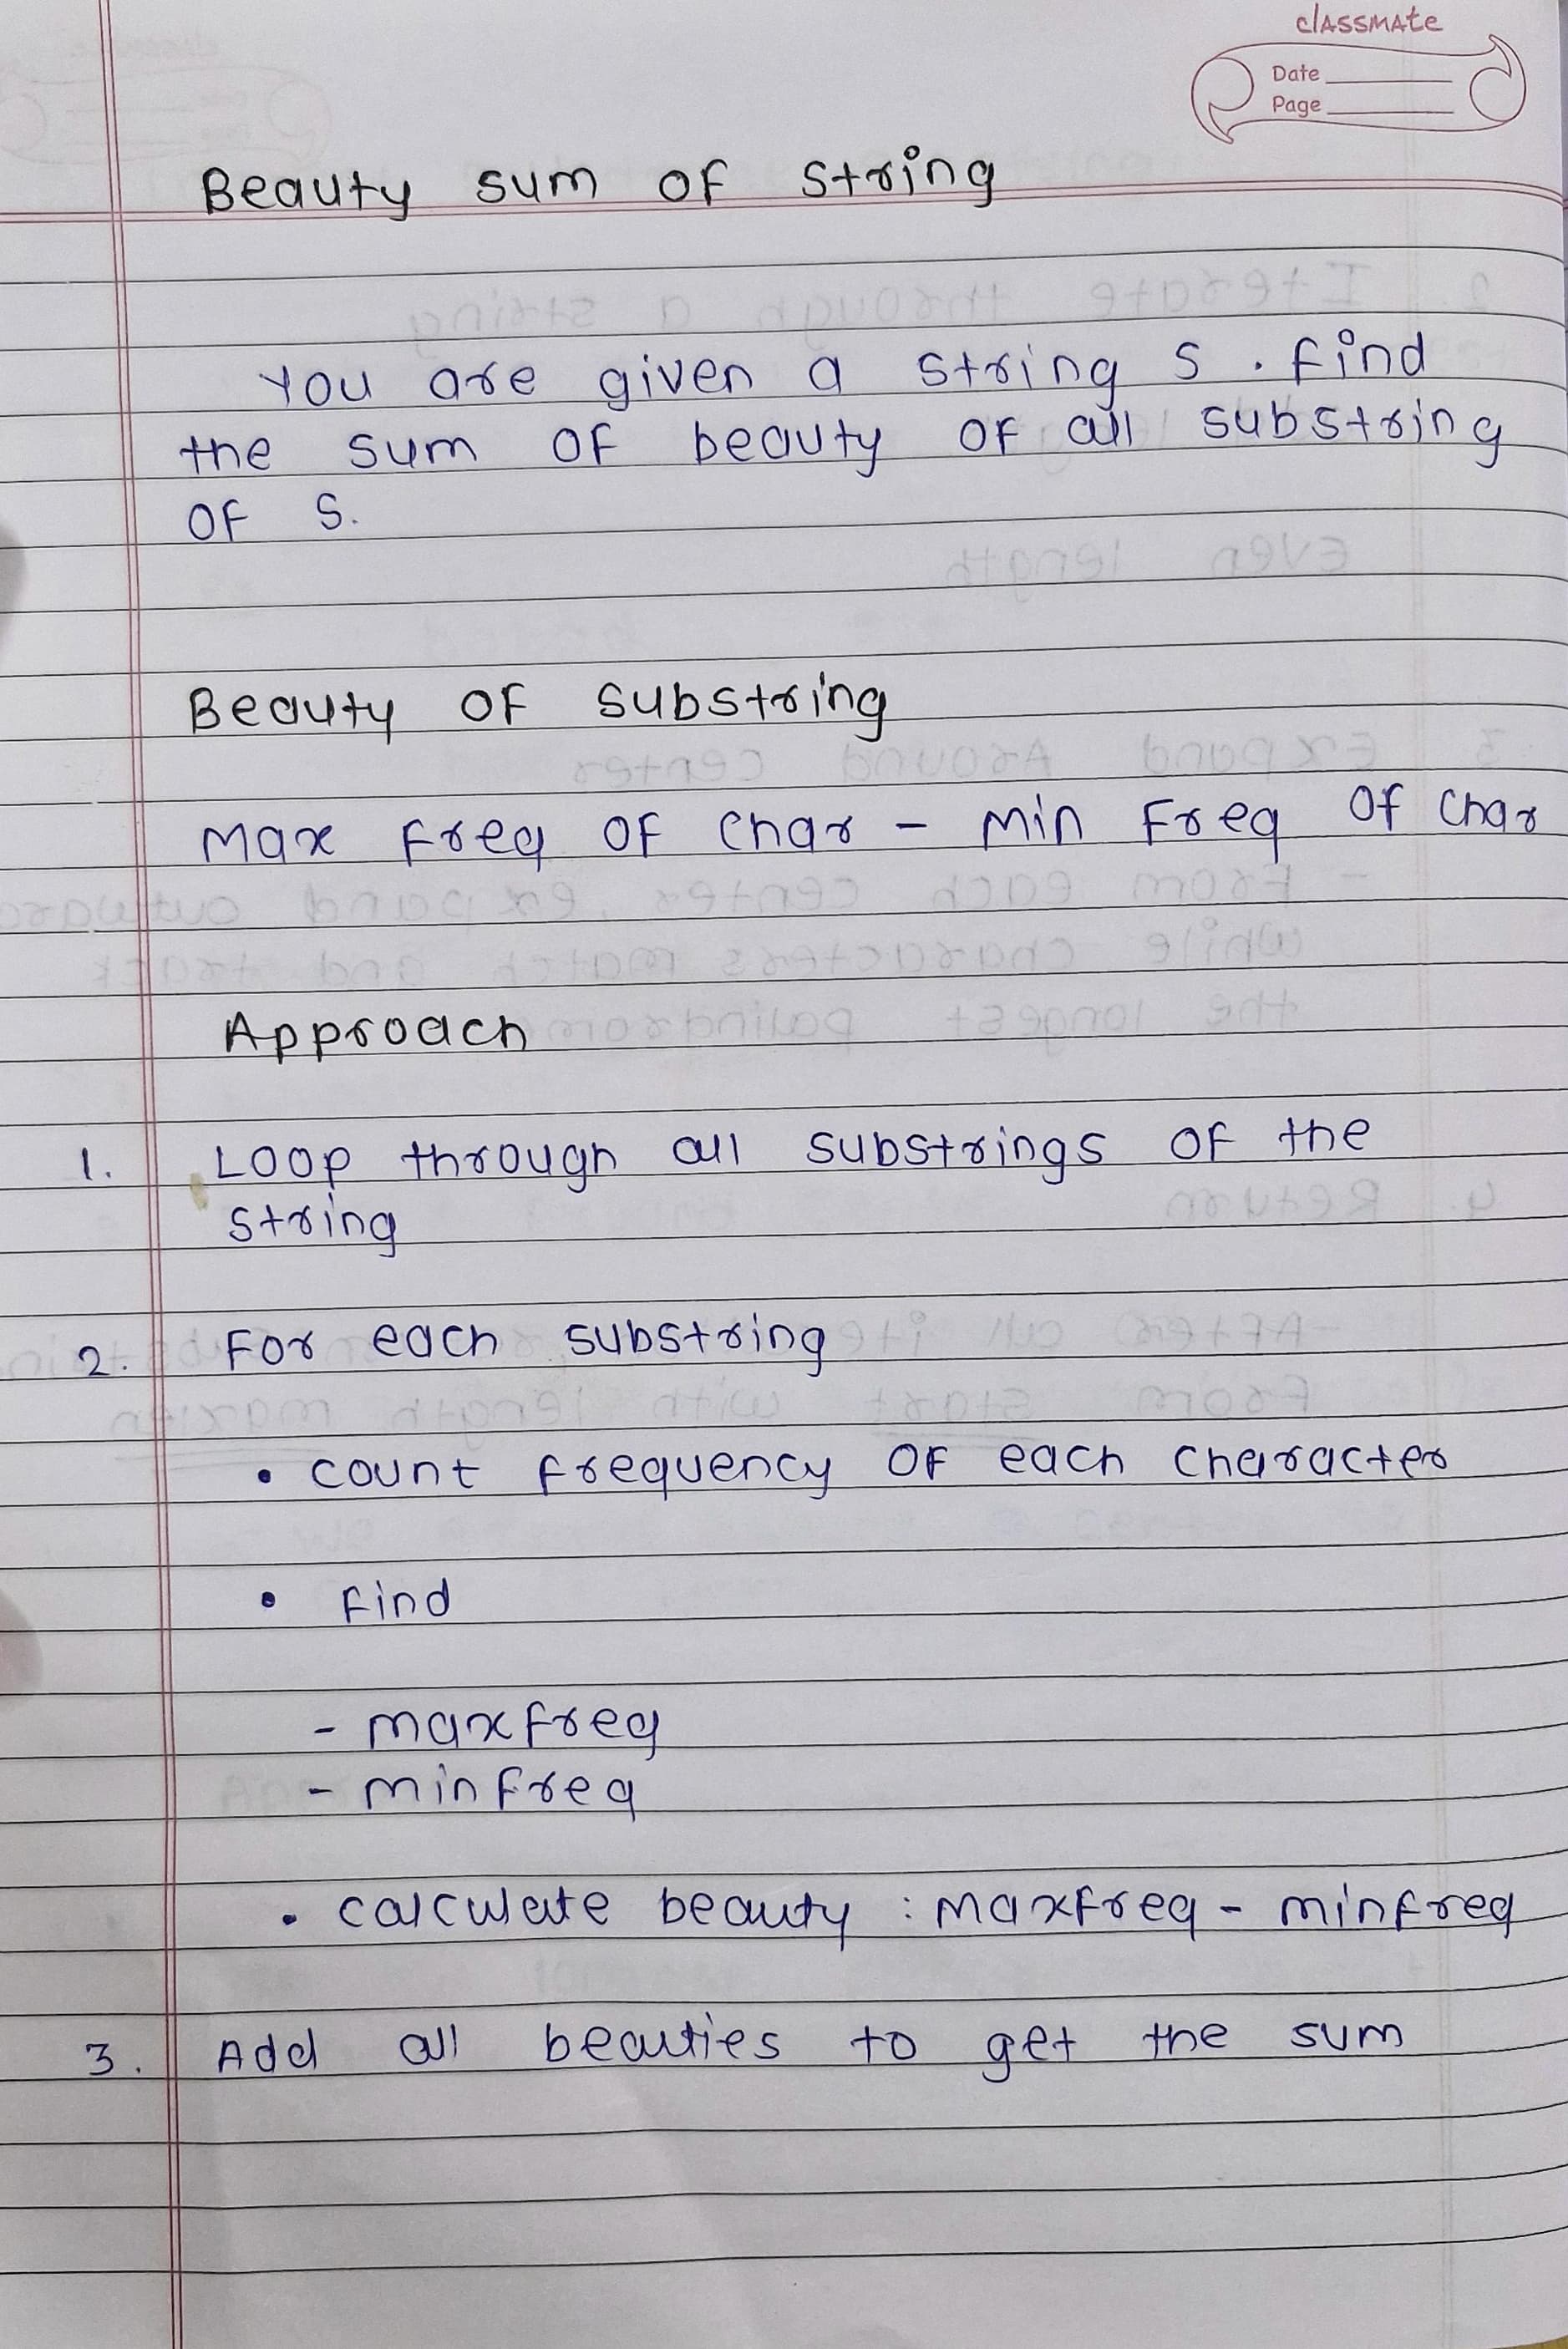 classmate
Date
Page
Beauty sum of string
You are given a string S. find
the sum of beauty of all substring
of S.
Beauty of substring
Max freq of char - Min freq of char
Approach
1. Loop through all substrings of the
string
2. For each substring
• count frequency of each character
• find
- maxfreq
- minfreq
• calculate beauty : maxfreq - minfreq
3. Add all beauties to get the sum